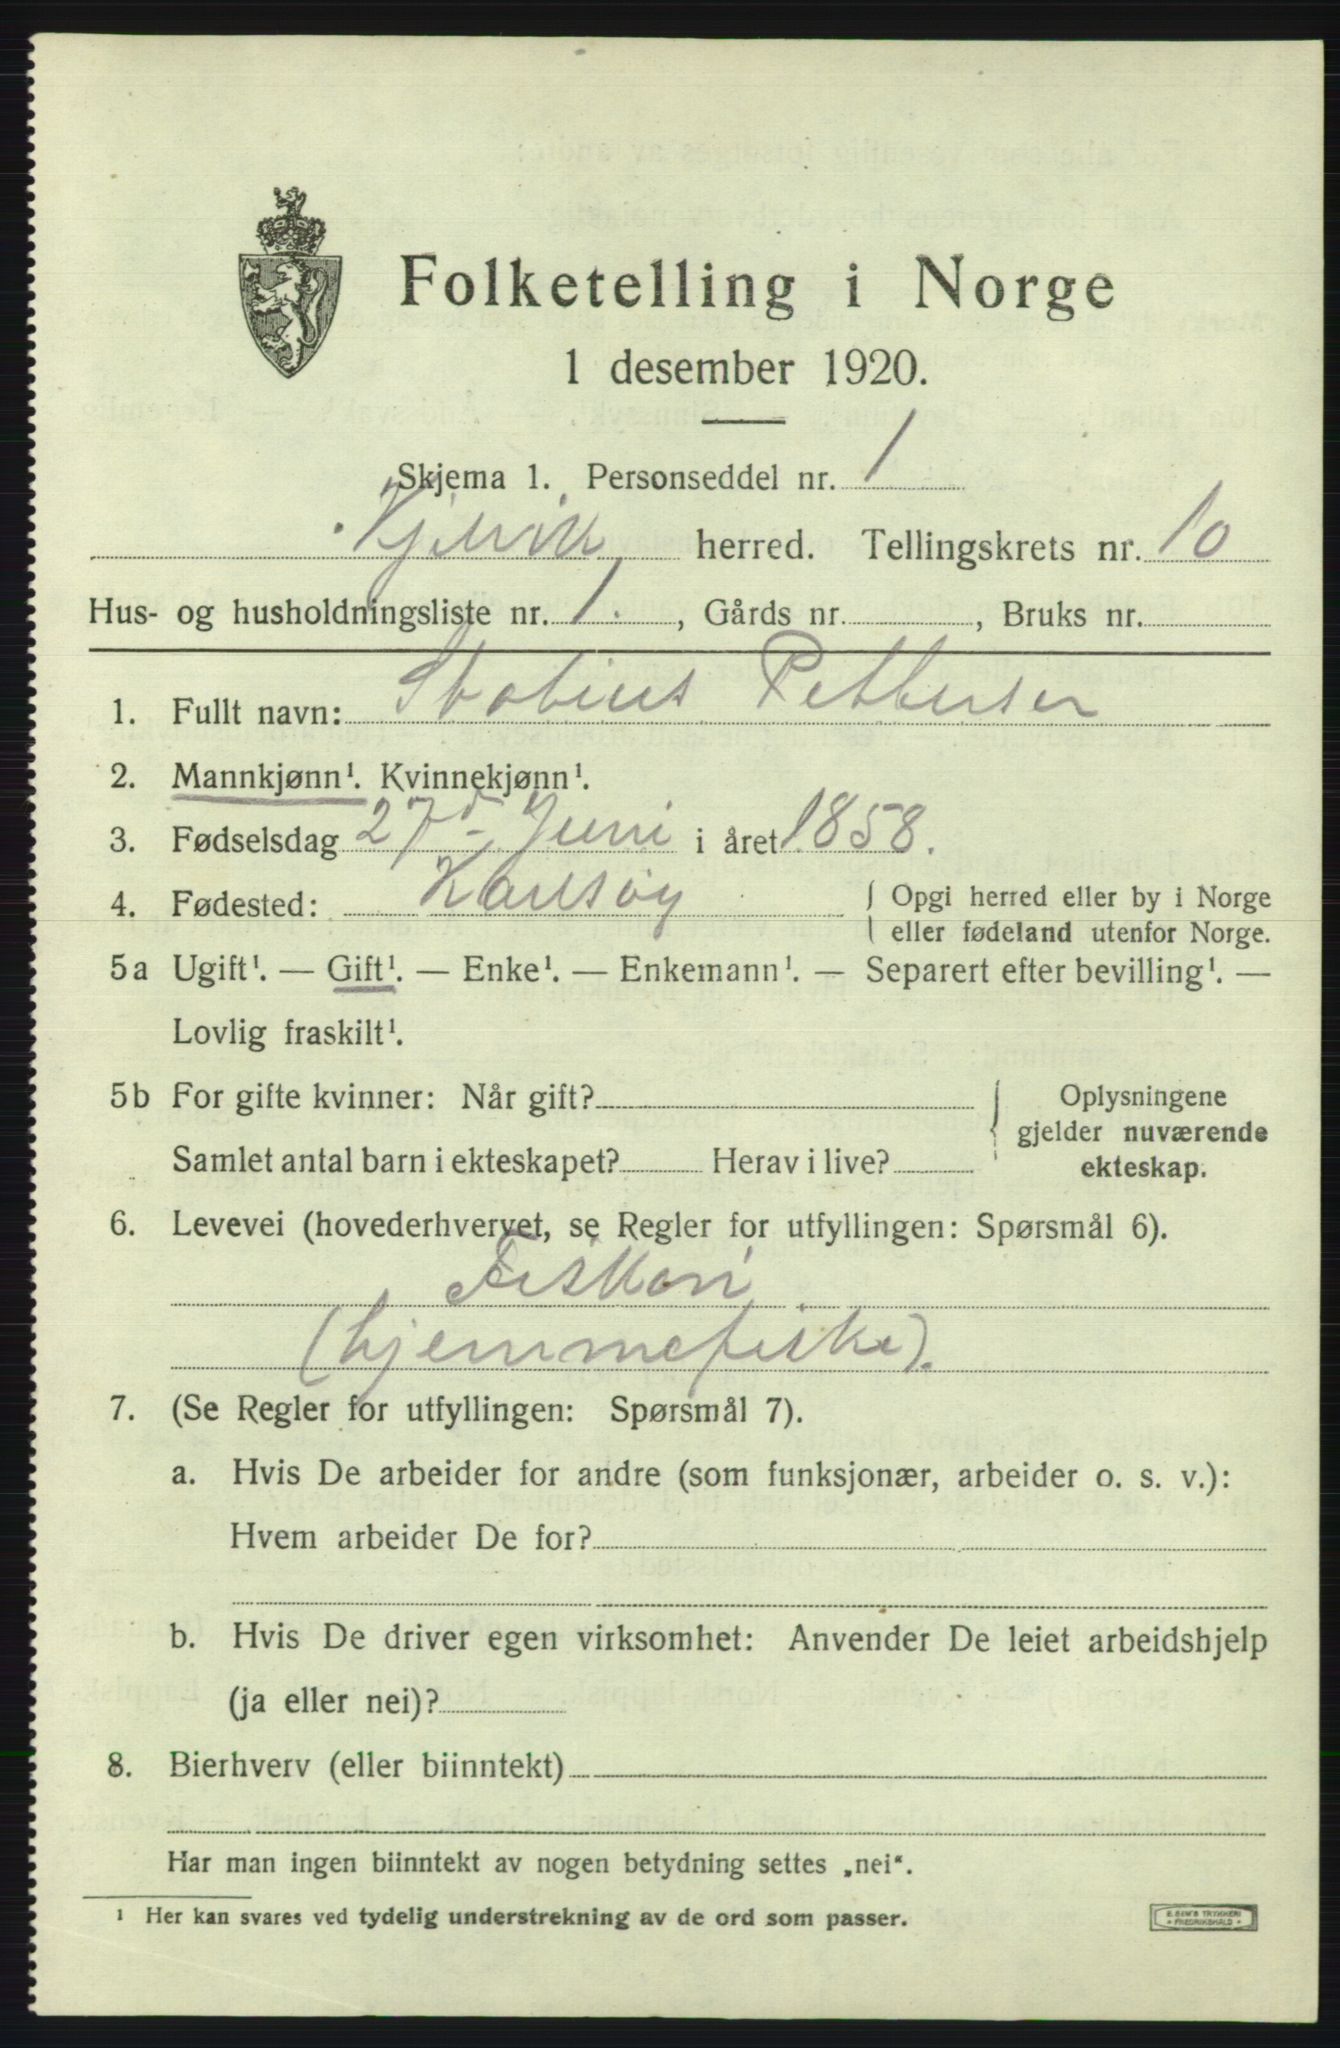 Folketelling i Norge
1 desember 1920.
Skjema 1. Personseddel nr. 1
Kjelvik herred. Tellingskrets nr. 10
Hus- og husholdningsliste nr. 1. , Gårds nr. , Bruks nr.
1. Fullt navn: Pettersen
2. Mannkjønn¹. Kvinnekjønn¹.
3. Fødselsdag 27de Juni i året 1858.
4. Fødested: Karlsøy { Opgi herred eller by i Norge
eller fødeland utenfor Norge.
5a Ugift¹. — Gift¹. — Enke¹. — Enkemann¹. — Separert efter bevilling¹. —
Lovlig fraskilt¹.
5b For gifte kvinner: Når gift? { Oplysningene
gjelder nuværende
Samlet antal barn i ekteskapet? Herav i live? ekteskap.
6. Levevei (hovederhvervet, se Regler for utfyllingen: Spørsmål 6).
Fiskeri
(hjemmefiske).
7. (Se Regler for utfyllingen: Spørsmål 7).
a. Hvis De arbeider for andre (som funksjonær, arbeider o. s. v.):
Hvem arbeider De for?
b. Hvis De driver egen virksomhet: Anvender De leiet arbeidshjelp
(ja eller nei)?
8. Bierhverv (eller biinntekt)
Har man ingen biinntekt av nogen betydning settes „nei".
¹ Her kan svares ved tydelig understrekning av de ord som passer.
E. SEM'S TRYKKERI
FREDRIKSHALD